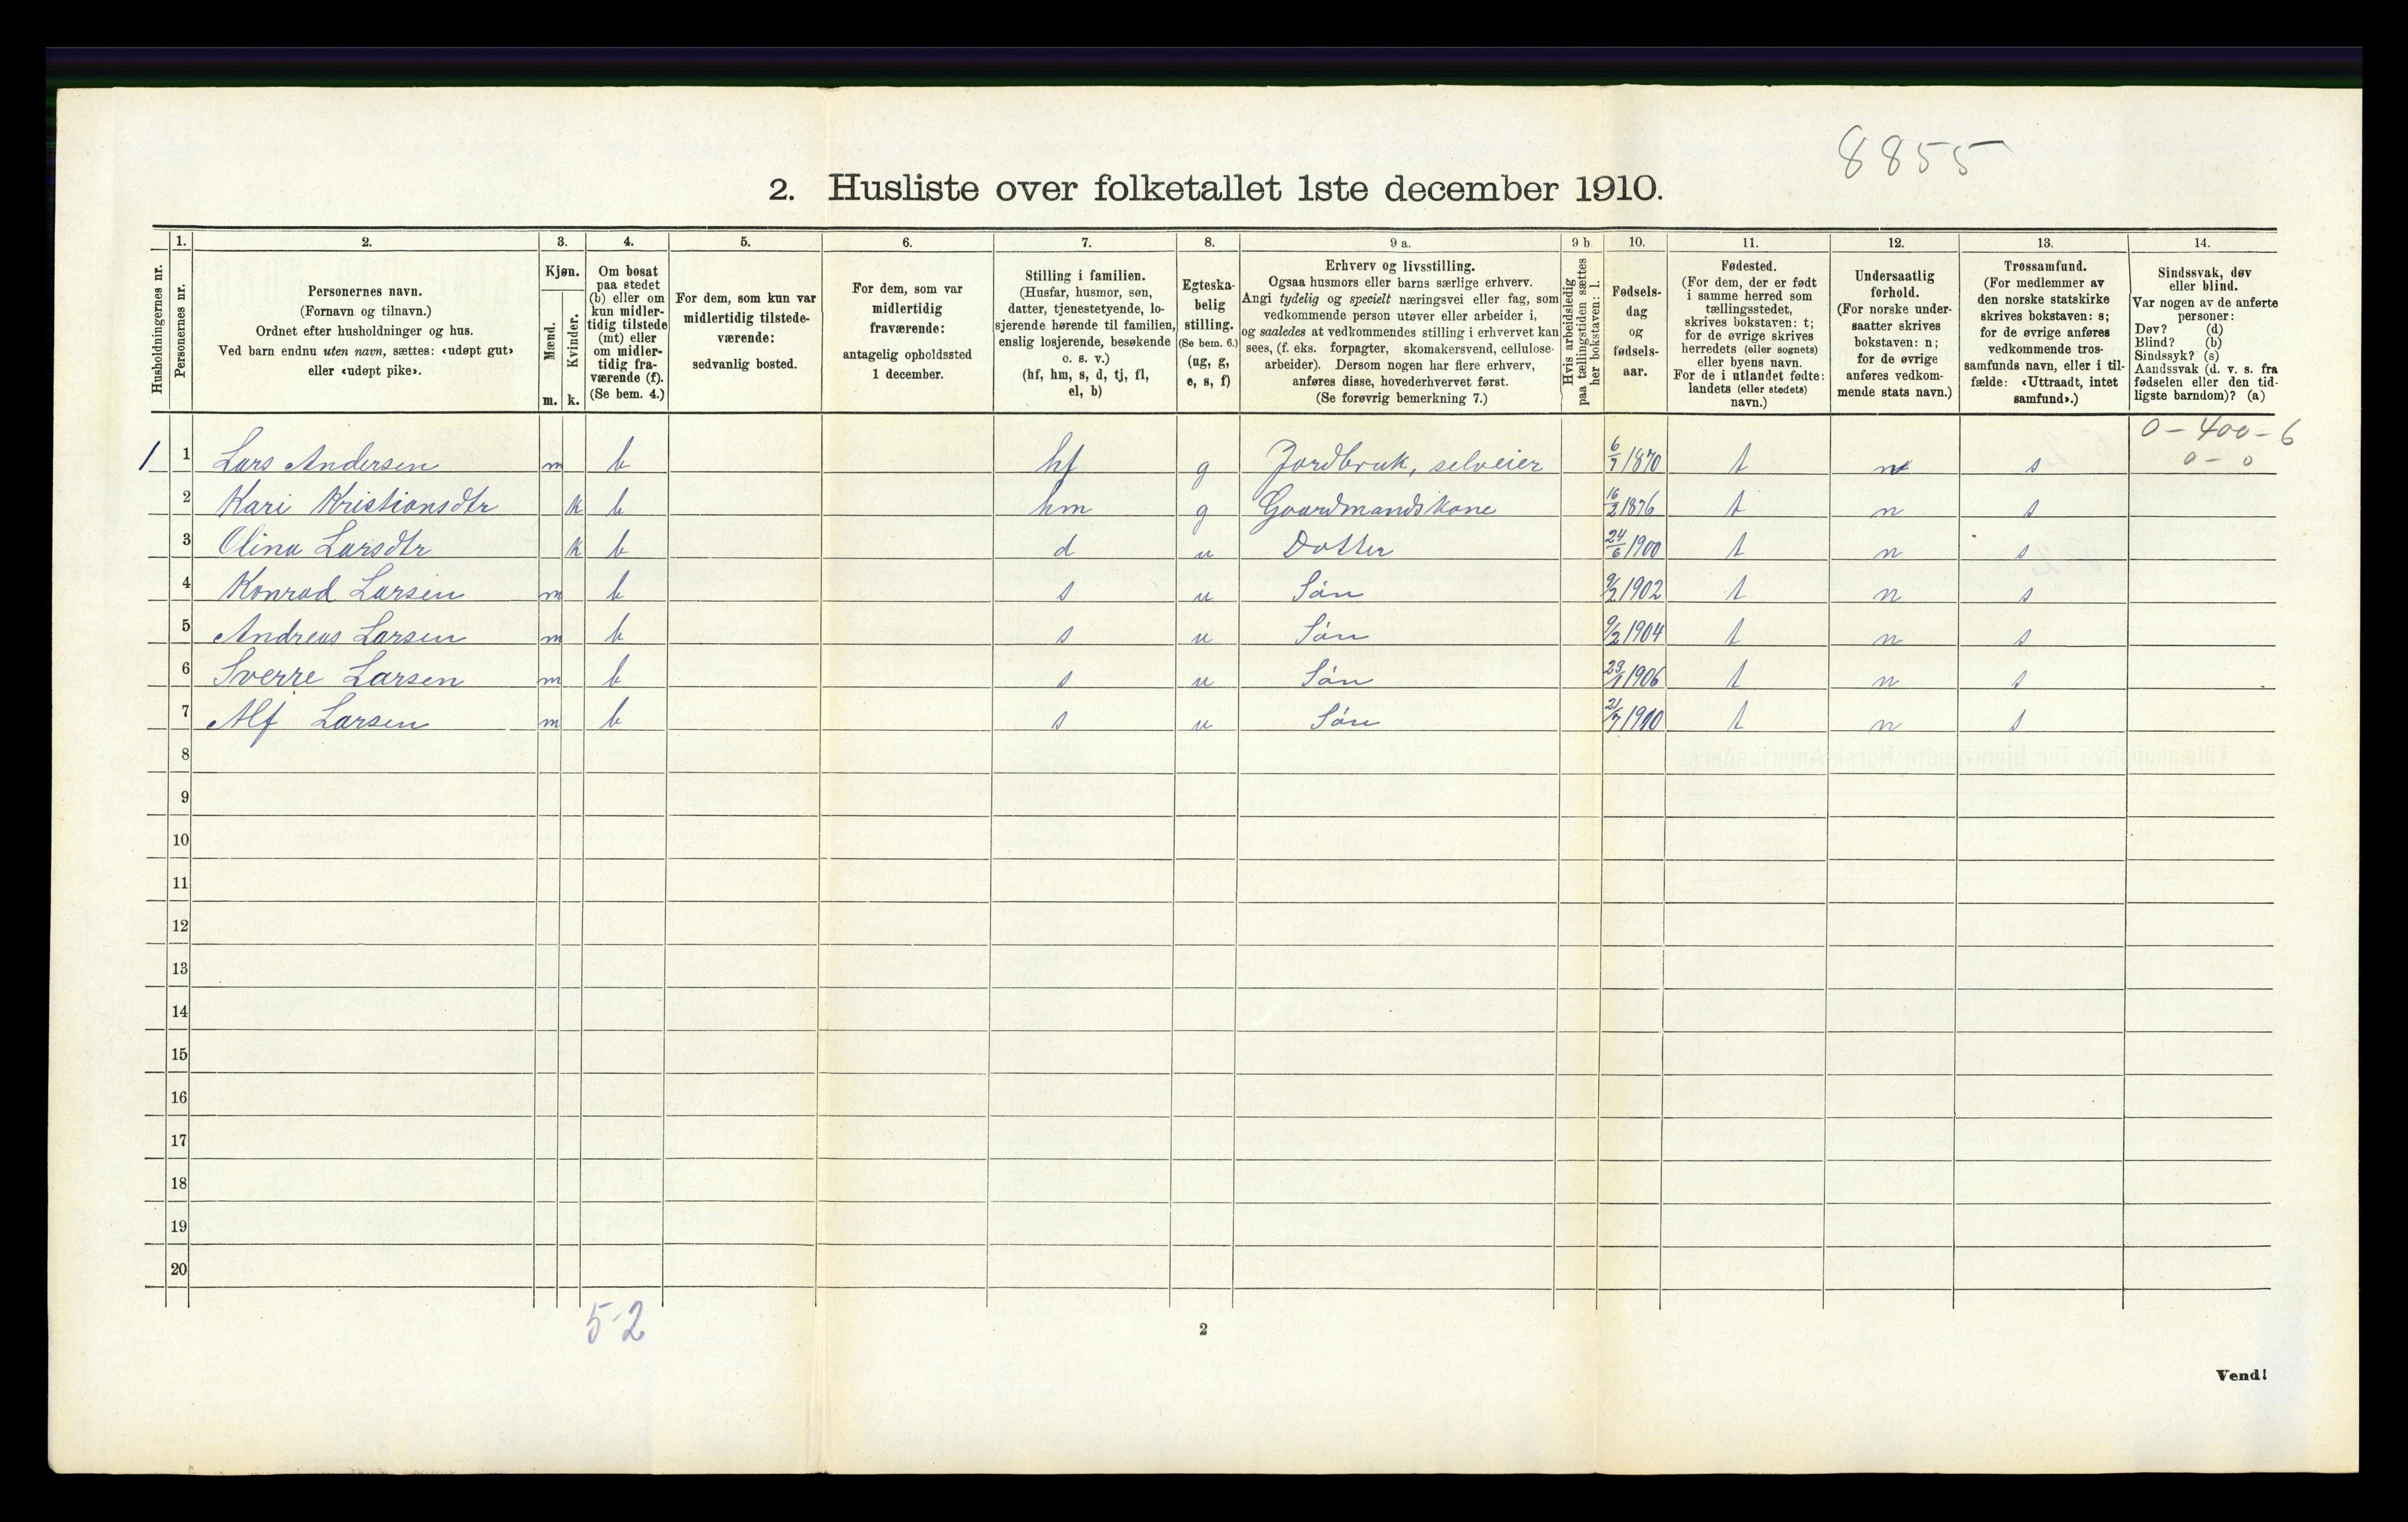 8855
2. Husliste over folketallet 1ste december 1910.
Husholdningernes nr.
1.
Personernes nr.
2.
Personernes navn.
(Fornavn og tilnavn.)
Ordnet efter husholdninger og hus.
Ved barn endnu uten navn, sættes: «udøpt gut»
eller «udøpt pike».
3.
Kjøn.
Mænd.
Kvinder.
m. k.
4.
Om bosat
paa stedet
(b) eller om
kun midler-
tidig tilstede
(mt) eller
om midler-
tidig fra-
værende (f).
(Se bem. 4.)
5.
For dem, som kun var
midlertidig tilstede-
værende:
sedvanlig bosted.
6.
For dem, som var
midlertidig
fraværende:
antagelig opholdssted
1 december.
7.
Stilling i familien.
(Husfar, husmor, søn,
datter, tjenestetyende, lo-
sjerende hørende til familien,
enslig losjerende, besøkende
o. s. v.)
(hf, hm, s, d, tj, fl,
el, b)
8.
Egteska-
belig
stilling.
(Se bem. 6.)
(ug, g,
e, s, f)
9 a.
Erhverv og livsstilling.
Ogsaa husmors eller barns særlige erhverv.
Angi tydelig og specielt næringsvei eller fag, som
vedkommende person utøver eller arbeider i,
og saaledes at vedkommendes stilling i erhvervet kan
sees, (f. eks. forpagter, skomakersvend, cellulose-
arbeider). Dersom nogen har flere erhverv,
anføres disse, hovederhvervet først.
(Se forøvrig bemerkning 7.)
9 b
Hvis arbeidsledig
paa tællingstiden sættes
her bokstaven: l.
10.
Fødsels-
dag
og
fødsels-
aar.
11.
Fødested.
(For dem, der er født
i samme herred som
tællingsstedet,
skrives bokstaven: t;
for de øvrige skrives
herredets (eller sognets)
eller byens navn.
For de i utlandet fødte:
landets (eller stedets)
navn.)
12.
Undersaatlig
forhold.
(For norske under-
saatter skrives
bokstaven: n;
for de øvrige
anføres vedkom-
mende stats navn.)
13.
Trossamfund.
(For medlemmer av
den norske statskirke
skrives bokstaven: s;
for de øvrige anføres
vedkommende tros-
samfunds navn, eller i til-
fælde: «Uttraadt, intet
samfund».)
14.
Sindssvak, døv
eller blind.
Var nogen av de anførte
personer:
Døv? (d)
Blind? (b)
Sindssyk? (s)
Aandssvak (d. v. s. fra
fødselen eller den tid-
ligste barndom)? (a)
0 - 400 - 6
0 - 0
1 1 Lars Andersen m b hf g Jordbruk, selveier 6/7 1870 t n s
2 Kari Kristiansdtr k b hm g Gaardmandskone 16/2 1876 t n s
3 Olina Larsdtr k b d u Dotter 24/6 1900 t n s
4 Konrad Larsen m b s u Søn 9/2 1902 t n s
5 Andreas Larsen m b s u Søn 9/2 1904 t n s
6 Sverre Larsen m b s u Søn 23/1 1906 t n s
7 Alf Larsen m b s u Søn 21/7 1910 t n s
8
9
10
11
12
13
14
15
16
17
18
19
20
5-2
2
Vend!